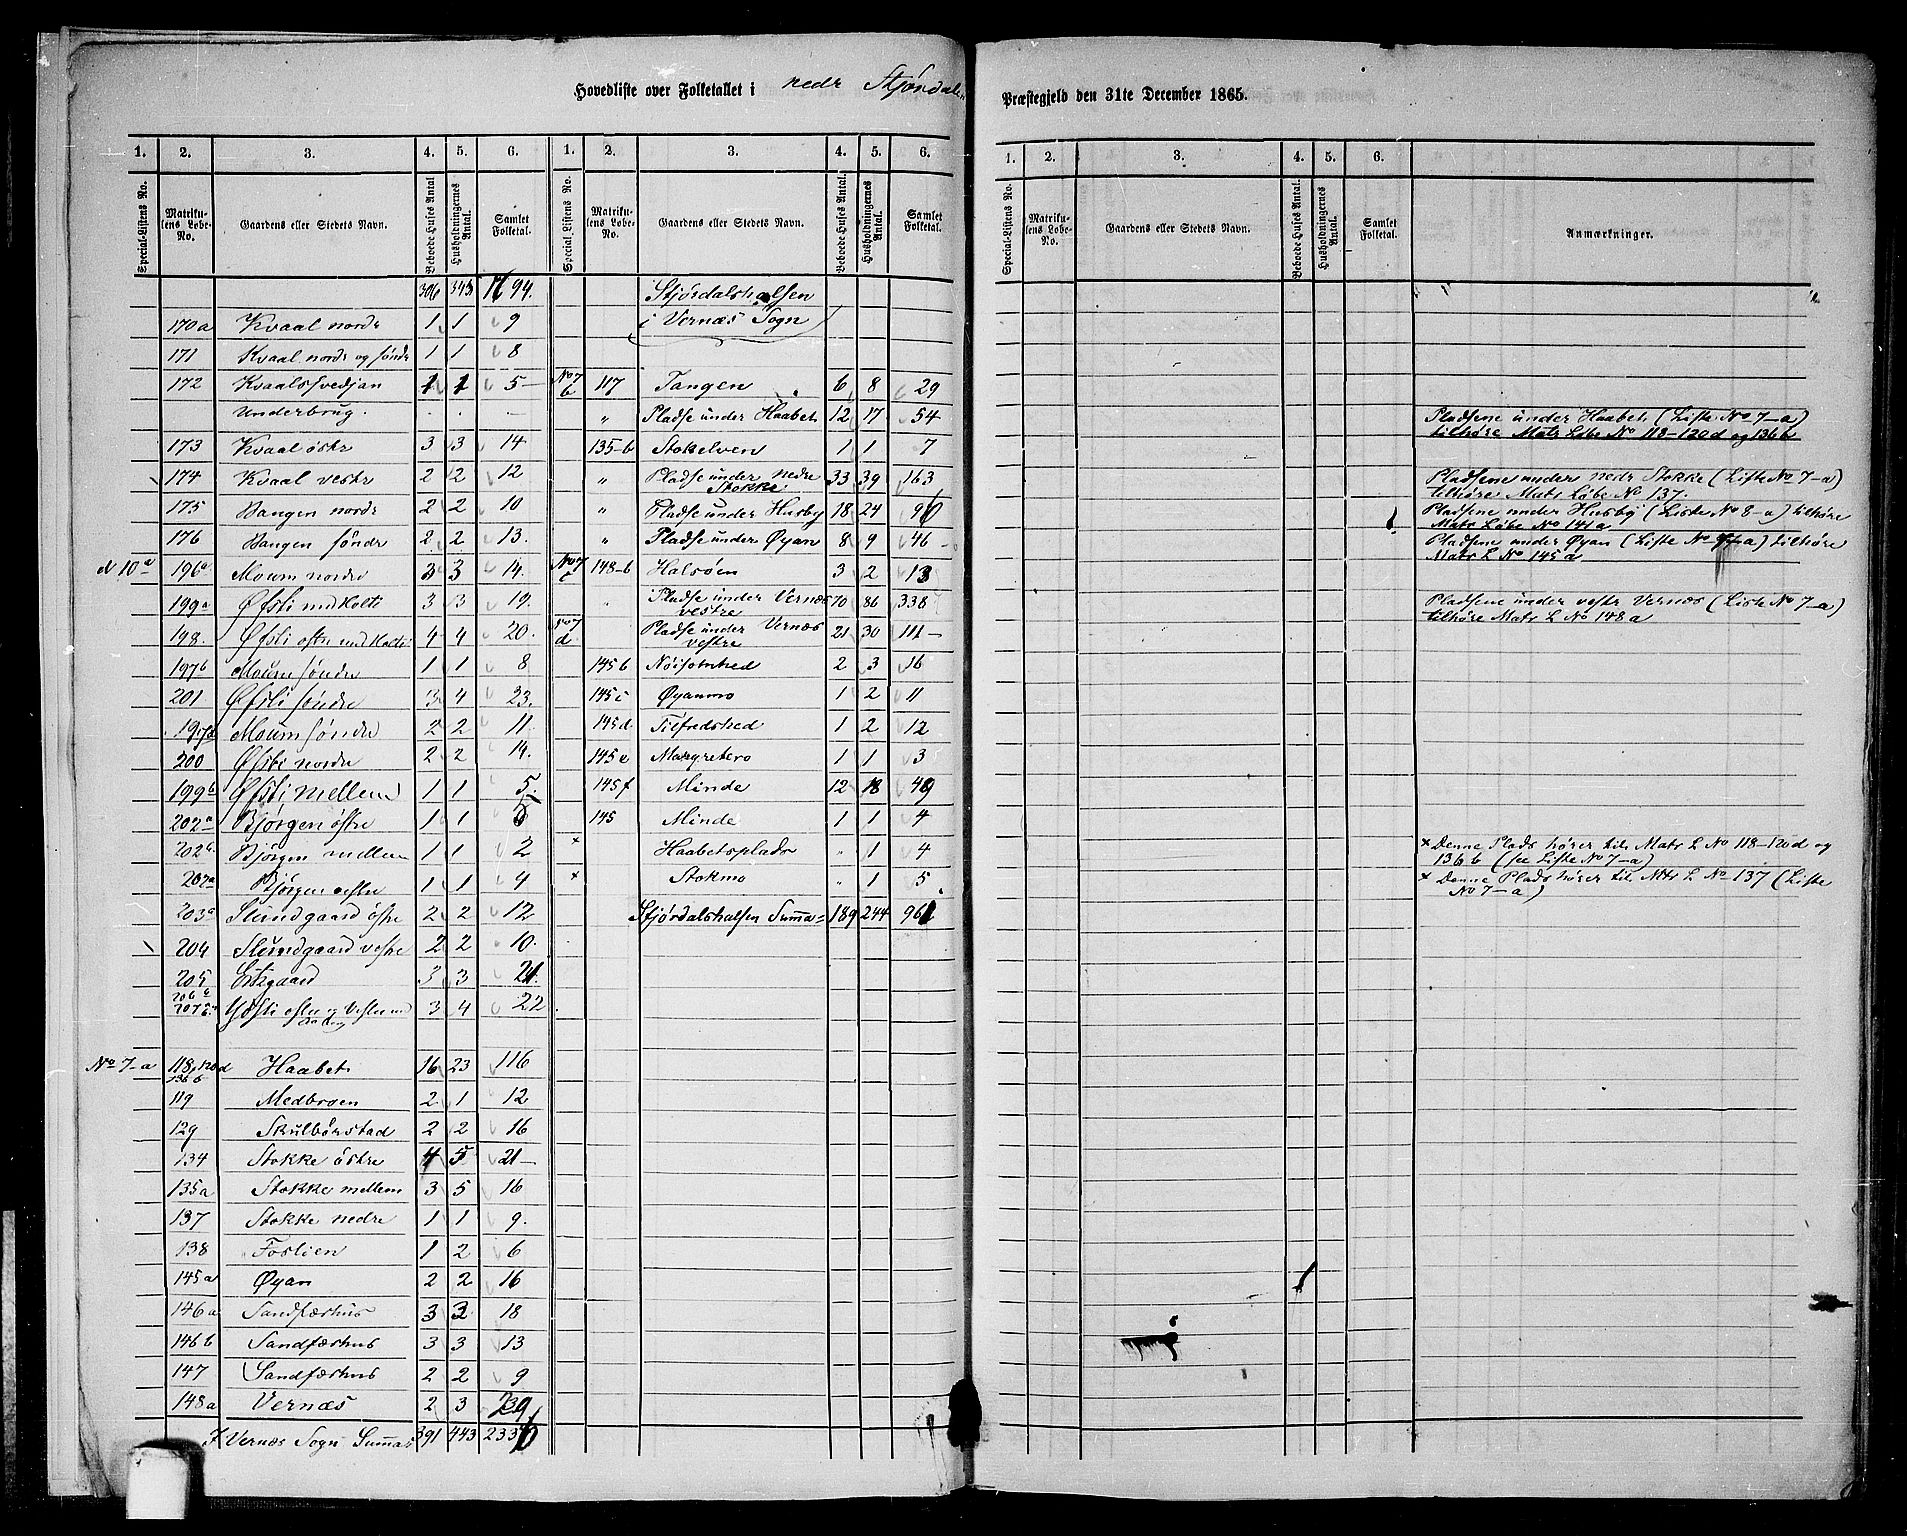 Hovedliste over Folketallet i nedr Stjørdalen Præstegjeld den 31te December 1865.
1. 2. 3. 4. 5. 6. 1. 2. 3. 4. 5. 6.
Special-Listens No. Matrikulens Løbe-No. Gaardens eller Stedets Navn. Beboede Huses Antal Husholdningernes Antal. Samlet Folketal.
306 343 1694.
170a Kvaal nordr 1 1 9
171 Kvaal nordr og søndr 1 1 8
172 Kvaalssvedjan 1 1 5
Underbrug.
173 Kvaal østr 3 3 14
174 Kvaal vestr 2 2 12
175 Vangen nordr 2 2 10
176 Vangen søndr 2 2 13.
N 10a 196a Moum nordre 3 3 14.
199a Øfsti med Holti 3 3 19.
198. Øfsti østre med Holti 4 4 20.
197b Moum søndre 1 1 8
201 Øfsti søndre 3 4 23.
197d Moum søndre 2 2 11.
200 Øfsti nordre 2 2 14.
199b Øfsti mellem 1 1 5.
202a Bjørgen østre 1 1
202b. Bjørgen mellem 1 1 2
207a Bjørgen vestre 1 1 4
203a Slundgaard østre 2 2 12
204 Slundgaard vestre 2 2 10.
205 Eidsgaard 3 3 21.
206b 207a 3 4 22
No 7-a 118, 120d 136b Haabet 16 23 116
119 Medbroen 2 1 12
129 Skulbørstad 2 2 16
134 Stokke østre 4 5 21
135a Stokke mellem 3 5 16
137 Stokke nedre 1 1 9.
138 Foslien 1 2 6
145a Øyan 2 2 16
146a Sandfærhus 3 3 18
146b Sandfærhus 3 3 13
147 Sandfærhus 2 2 9
148a Vernæs 2 3 239
I Vernæs Sogn Summa 391 443 2336
Special-Listens No. Matrikulens Løbe-No. Gaardens eller Stedets Navn. Beboede Huses Antal. Husholdningernes Antal. Samlet Folketal.
Stjørdalshalsen
i Vernæs Sogn
No 7 b 117 Tangen 6 8 29
" Pladse under Haabet 12 17 54
135-b Stokelven 1 1 7
" Pladse under nedre Stokke 33 39 163
" Pladse under Husby 18 24 96
" Pladse under Øyan 8 9 46
No 7 c 148-b Halsøen 3 2 13
" Pladse under Vernæs vestre 70 86 338
No 7 d Pladse under Vernæs vestre 21 30 111
145b Nøisomhed 2 3 16
145c Øyanmo 1 2 11
145d Tilfredshed 1 2 12
145e Margretero 1 1 3
145f Minde 12 18 49
145 Minde 1 1 4
× Haabetsplads " 1 4
× Stokmo " 1 5
Stjørdalshalsen Summa = 189 244 961
1. 2. 3. 4. 5. 6.
Special-Listens No. Matrikulens Løbe-No. Gaardens eller Stedets Navn. Beboede Huses Antal. Husholdningernes Antal. Samlet Folketal. Anmærkninger.
Pladsene under Haabet (Liste No 7-a)
tilhøre Matr Løbe No 118-120d og 136b
Pladsene under nedr Stokke (Liste No 7-a)
tilhøre Matr Løbe No 137.
Pladsene under Husby (Liste No 8-a) tilhøre
Matr Løbe No 141a
Pladsene under Øyan (Liste No 7-a) tilhøre
Matr L No 145a
Pladsene under vestr Vernæs (Liste No 7-a)
tilhøre Matr L No 148a
× Denne Plads hører til Matr L No 118-120d og
136b (see Liste No 7-a)
× Denne Plads hører til Matr L No 137 (Liste
No 7-a)